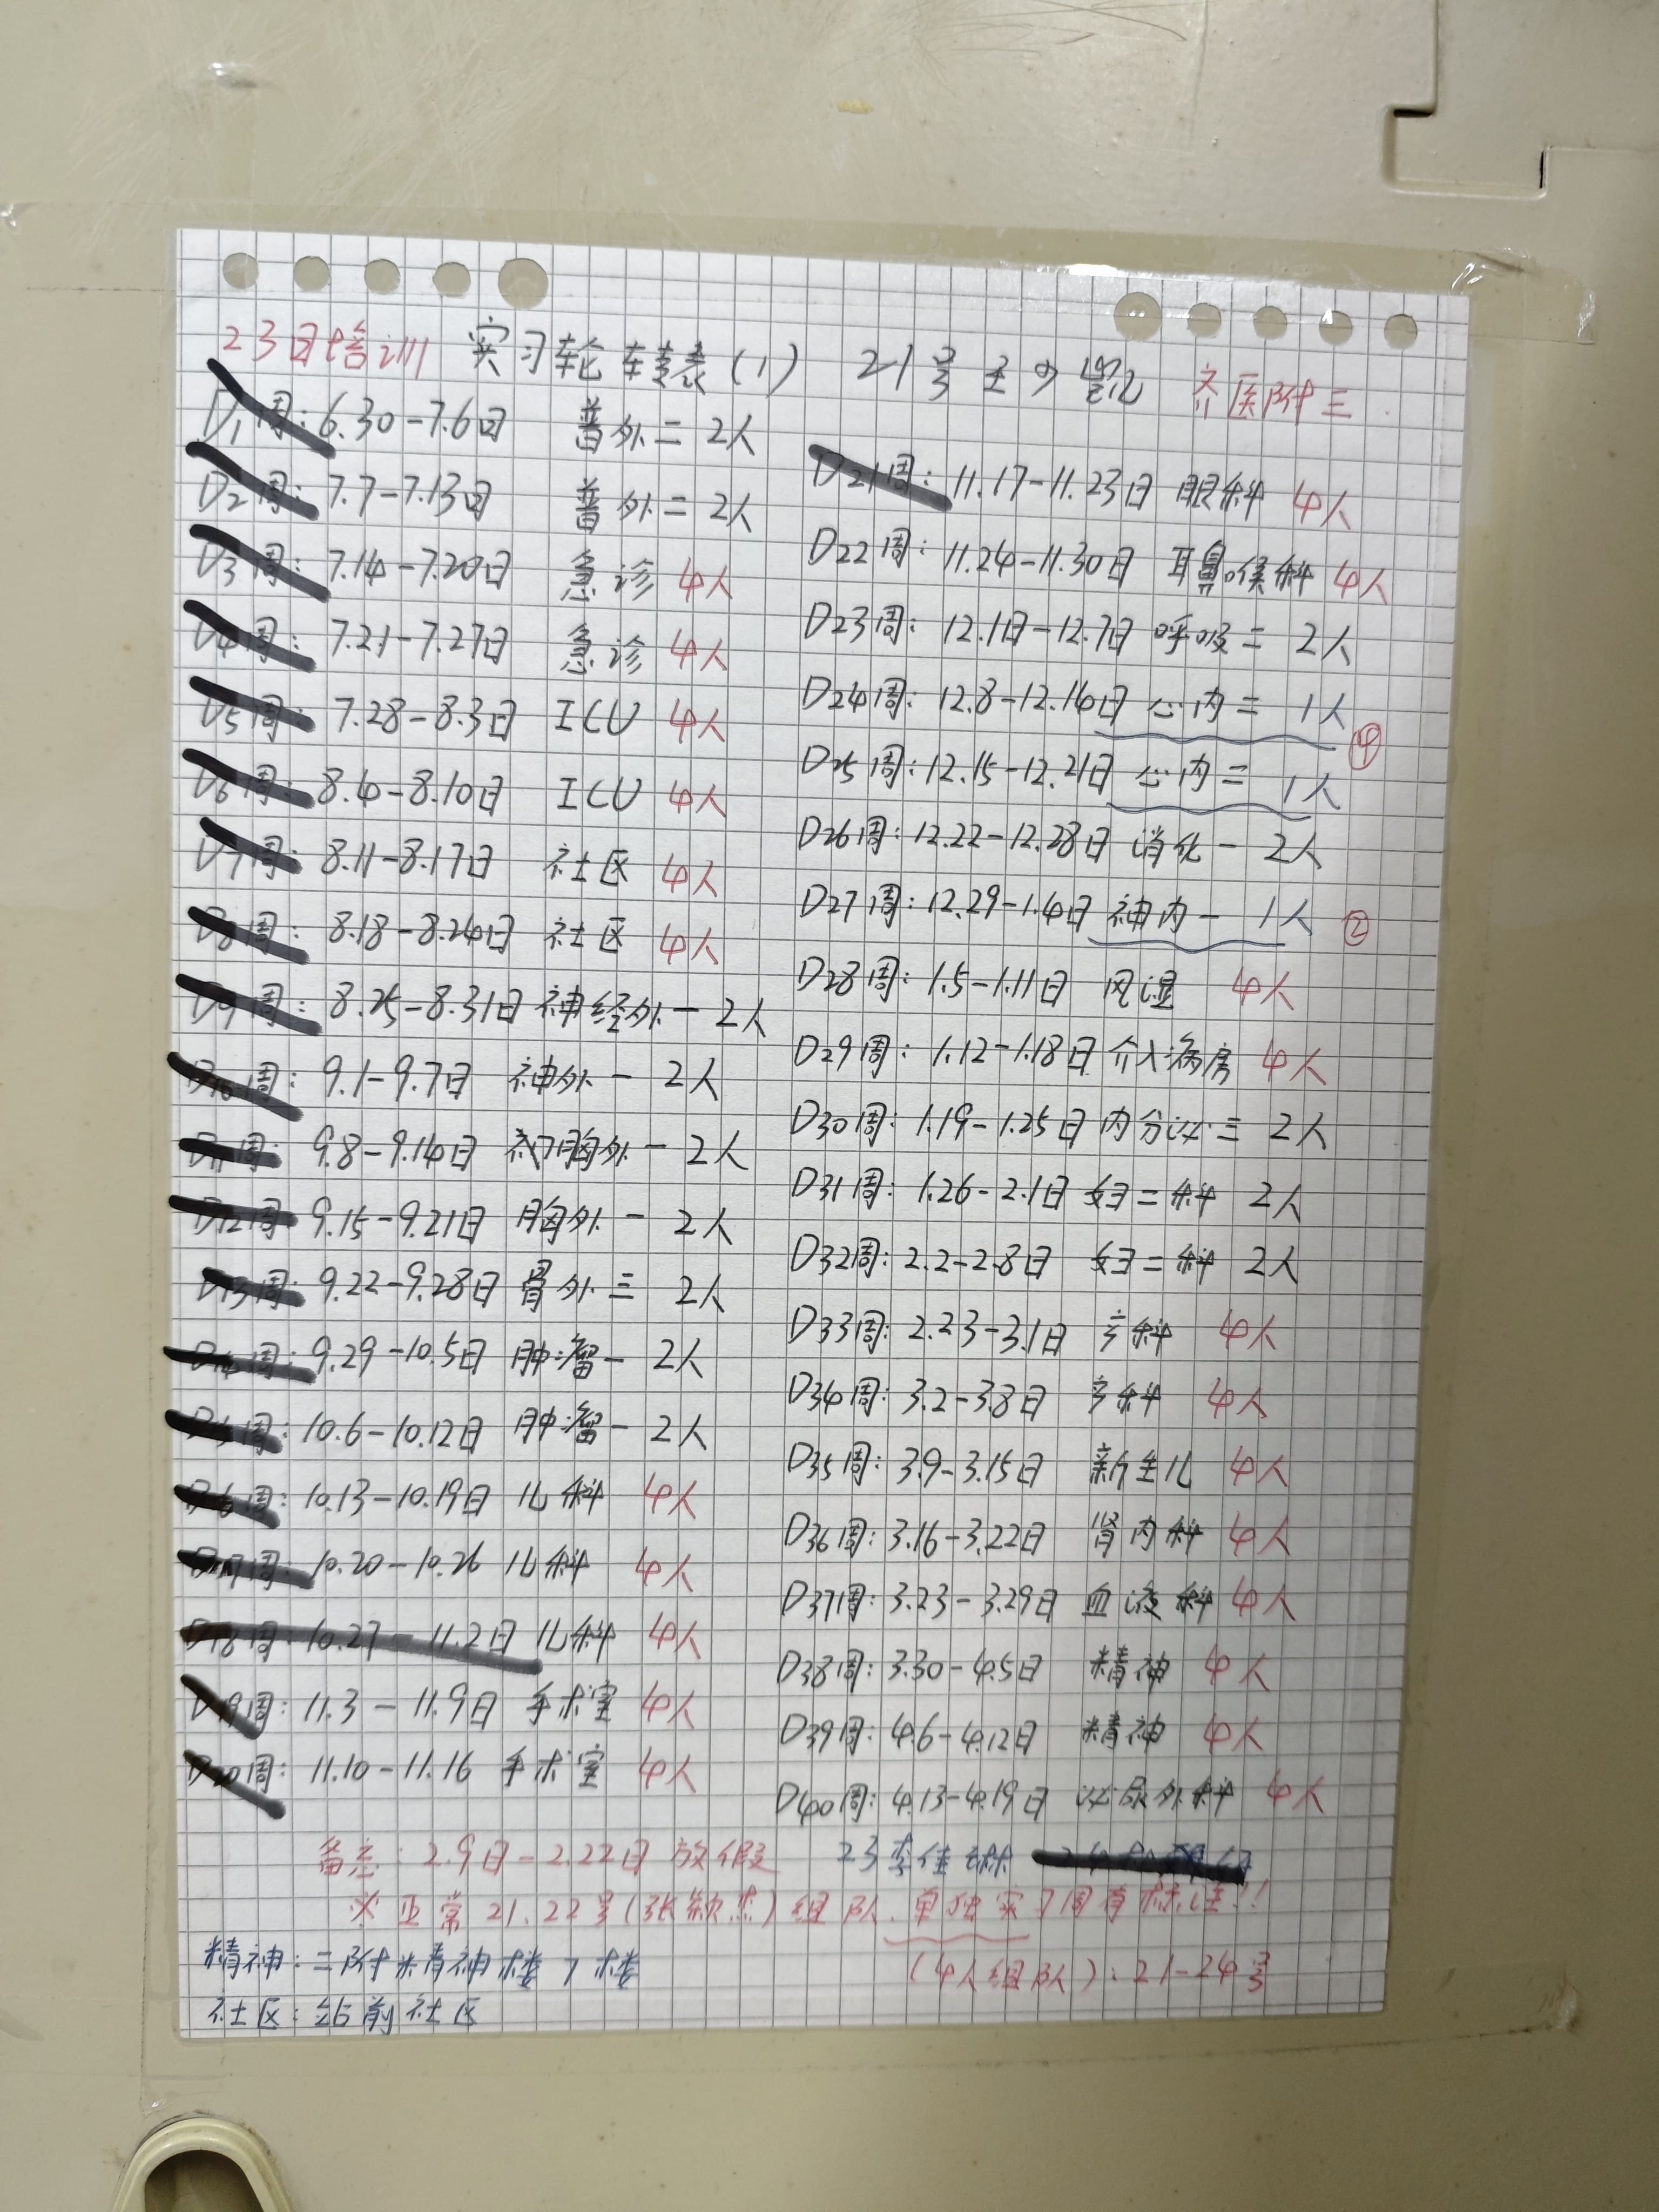 23日培训 实习轮转表(1) 21号 齐医附三
D1周: 6.30-7.6日 普外二 2人
D2周: 7.7-7.13日 普外二 2人
D3周: 7.14-7.20日 急诊 4人
D4周: 7.21-7.27日 急诊 4人
D5周: 7.28-8.3日 ICU 4人
D6周: 8.4-8.10日 ICU 4人
D7周: 8.11-8.17日 社区 4人
D8周: 8.18-8.24日 社区 4人
D9周: 8.25-8.31日 神经外一 2人
D10周: 9.1-9.7日 神外一 2人
D11周: 9.8-9.14日 胸外一 2人
D12周 9.15-9.21日 胸外一 2人
D13周: 9.22-9.28日 骨外三 2人
D14周: 9.29-10.5日 肿瘤一 2人
D15周: 10.6-10.12日 肿瘤一 2人
D16周: 10.13-10.19日 儿科 4人
D17周: 10.20-10.26 儿科 4人
D18周: 10.27-11.2日 儿科 4人
D19周: 11.3-11.9日 手术室 4人
D20周: 11.10-11.16 手术室 4人
D21周: 11.17-11.23日 眼科 4人
D22周: 11.24-11.30日 耳鼻喉科 4人
D23周: 12.1日-12.7日 呼吸二 2人
D24周: 12.8-12.14日 心内二 1人
D25周: 12.15-12.21日 心内二 1人
D26周: 12.22-12.28日 消化一 2人
D27周: 12.29-1.4日 神内一 1人 ②
D28周: 1.5-1.11日 风湿 4人
D29周: 1.12-1.18日 介入病房 4人
D30周: 1.19-1.25日 内分泌三 2人
D31周: 1.26-2.1日 妇二科 2人
D32周: 2.2-2.8日 妇二科 2人
D33周: 2.23-3.1日 产科 4人
D34周: 3.2-3.8日 产科 4人
D35周: 3.9-3.15日 新生儿 4人
D36周: 3.16-3.22日 肾内科 4人
D37周: 3.23-3.29日 血液科 4人
D38周: 3.30-4.5日 精神 4人
D39周: 4.6-4.12日 精神 4人
D40周: 4.13-4.19日 泌尿外科 4人
备忘: 2.9日-2.22日放假 23李佳
※正常21.22号(张)组队.单独实习周有标注!!
(4人组队): 21-24号
精神: 二附精神楼7楼
社区: 站前社区